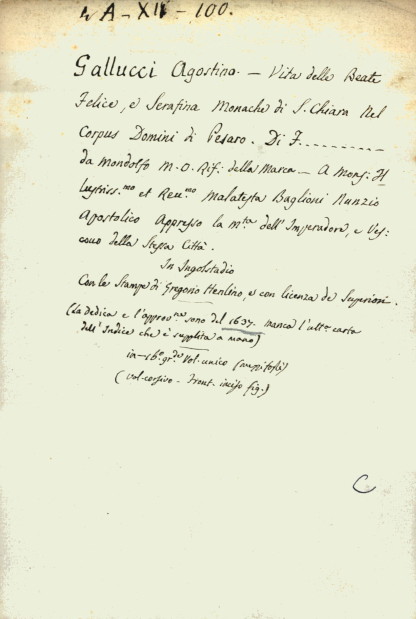 4 A-XII-100.
Gallucci Agostino. — Vita delle Beate
Felice, e Serafina Monache di S. Chiara Nel
Corpus Domini di Pesaro. Di F..........
da Mondolfo M. O. Rif: della Marca — A Mons: Il
lustriss.mo et Reu.mo Malatesta Baglioni Nunzio
Apostolico Appresso la M.ta dell'Imperadore, e Ves:
couo della Stessa Città.
In Ingolstadio
Con le Stampe di Gregorio Henlino, e con licenza de' Superiori.
(La dedica e l'approv.ne sono del 1637. manca l'ult.a carta
dell'Indice che è supplita a mano)
in-16º gr.de Vol. unico
(vol. corsivo - Front. inciso fig.)
C